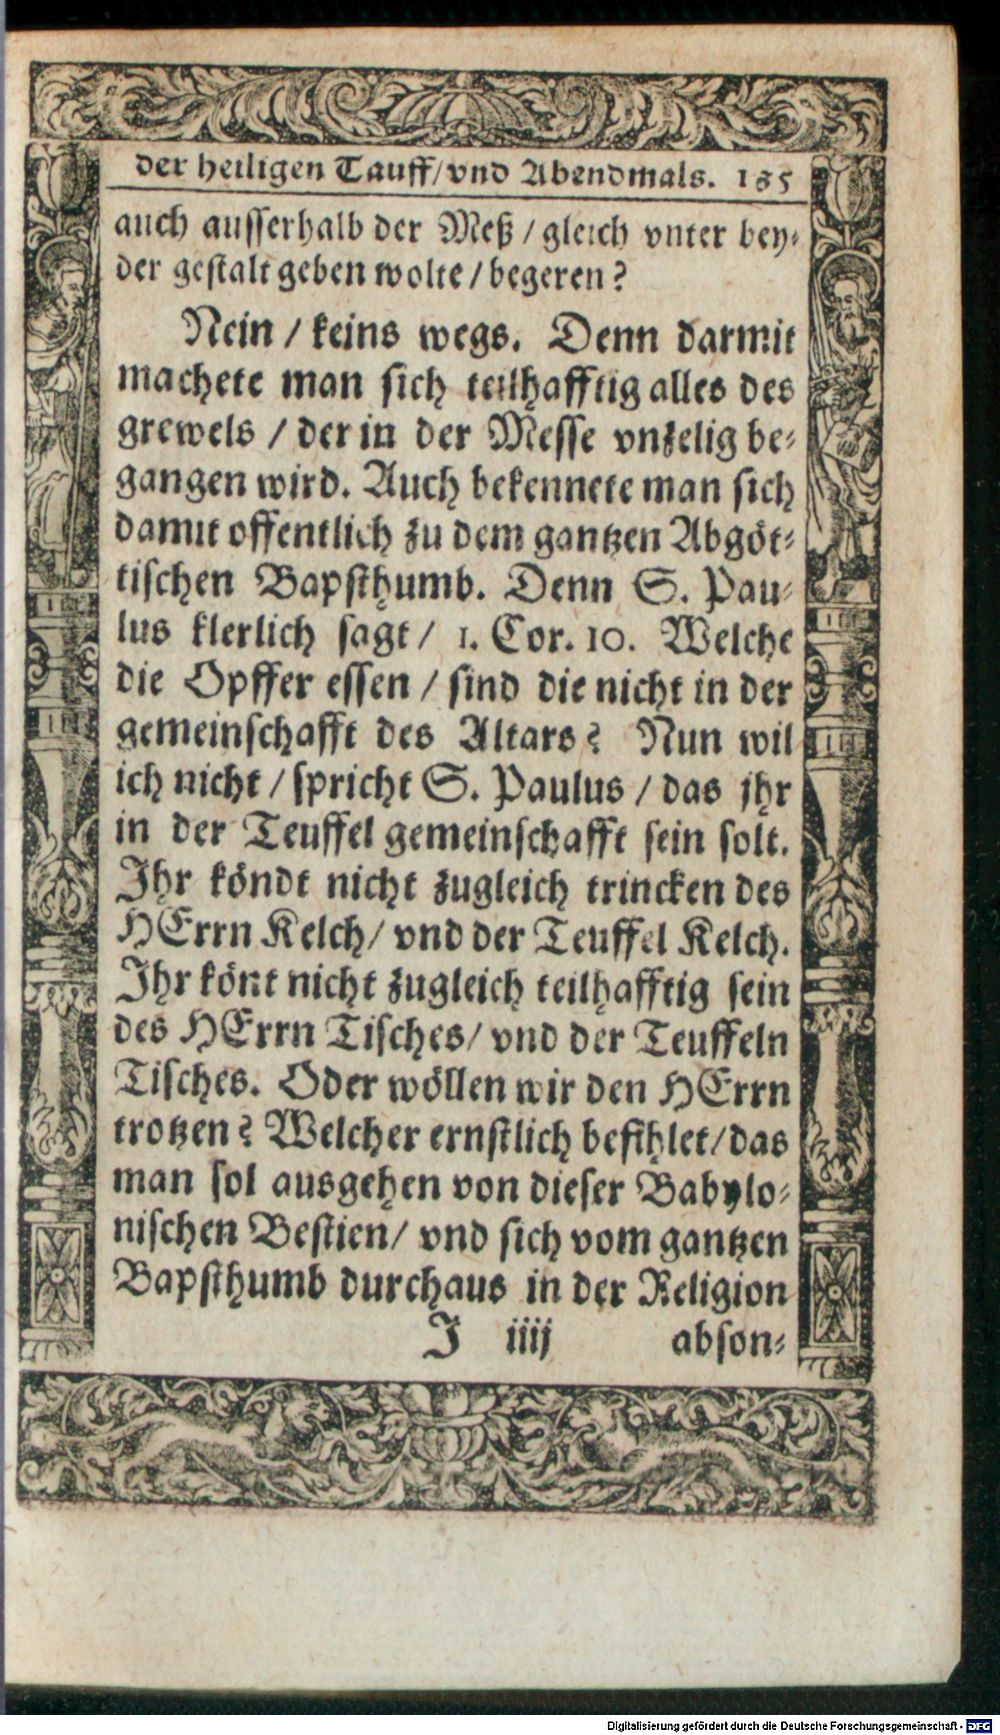 der heiligen Tauff/vnd Abendmals. 135
auch ausserhalb der Meß / gleich vnter bey-
der gestalt geben wolte / begeren?
Nein / keins wegs. Denn darmit
machete man sich teilhafftig alles des
grewels / der in der Messe vnselig be-
gangen wird. Auch bekennete man sich
damit offentlich zu dem gantzen Abgöt-
tischen Bapsthumb. Denn S. Pau-
lus klerlich sagt / 1. Cor. 10. Welche
die Opffer essen / sind die nicht in der
gemeinschafft des Altars? Nun wil
ich nicht / spricht S. Paulus / das jhr
in der Teuffel gemeinschafft sein solt.
Ihr köndt nicht zugleich trincken des
HErrn Kelch/ vnd der Teuffel Kelch.
Ihr könt nicht zugleich teilhafftig sein
des HErrn Tisches/ vnd der Teuffeln
Tisches. Oder wöllen wir den HErrn
trotzen? Welcher ernstlich befihlet/das
man sol ausgehen von dieser Babylo-
nischen Bestien/ vnd sich vom gantzen
Bapsthumb durchaus in der Religion
J iiij abson-
Digitalisierung gefördert durch die Deutsche Forschungsgemeinschaft - DFG